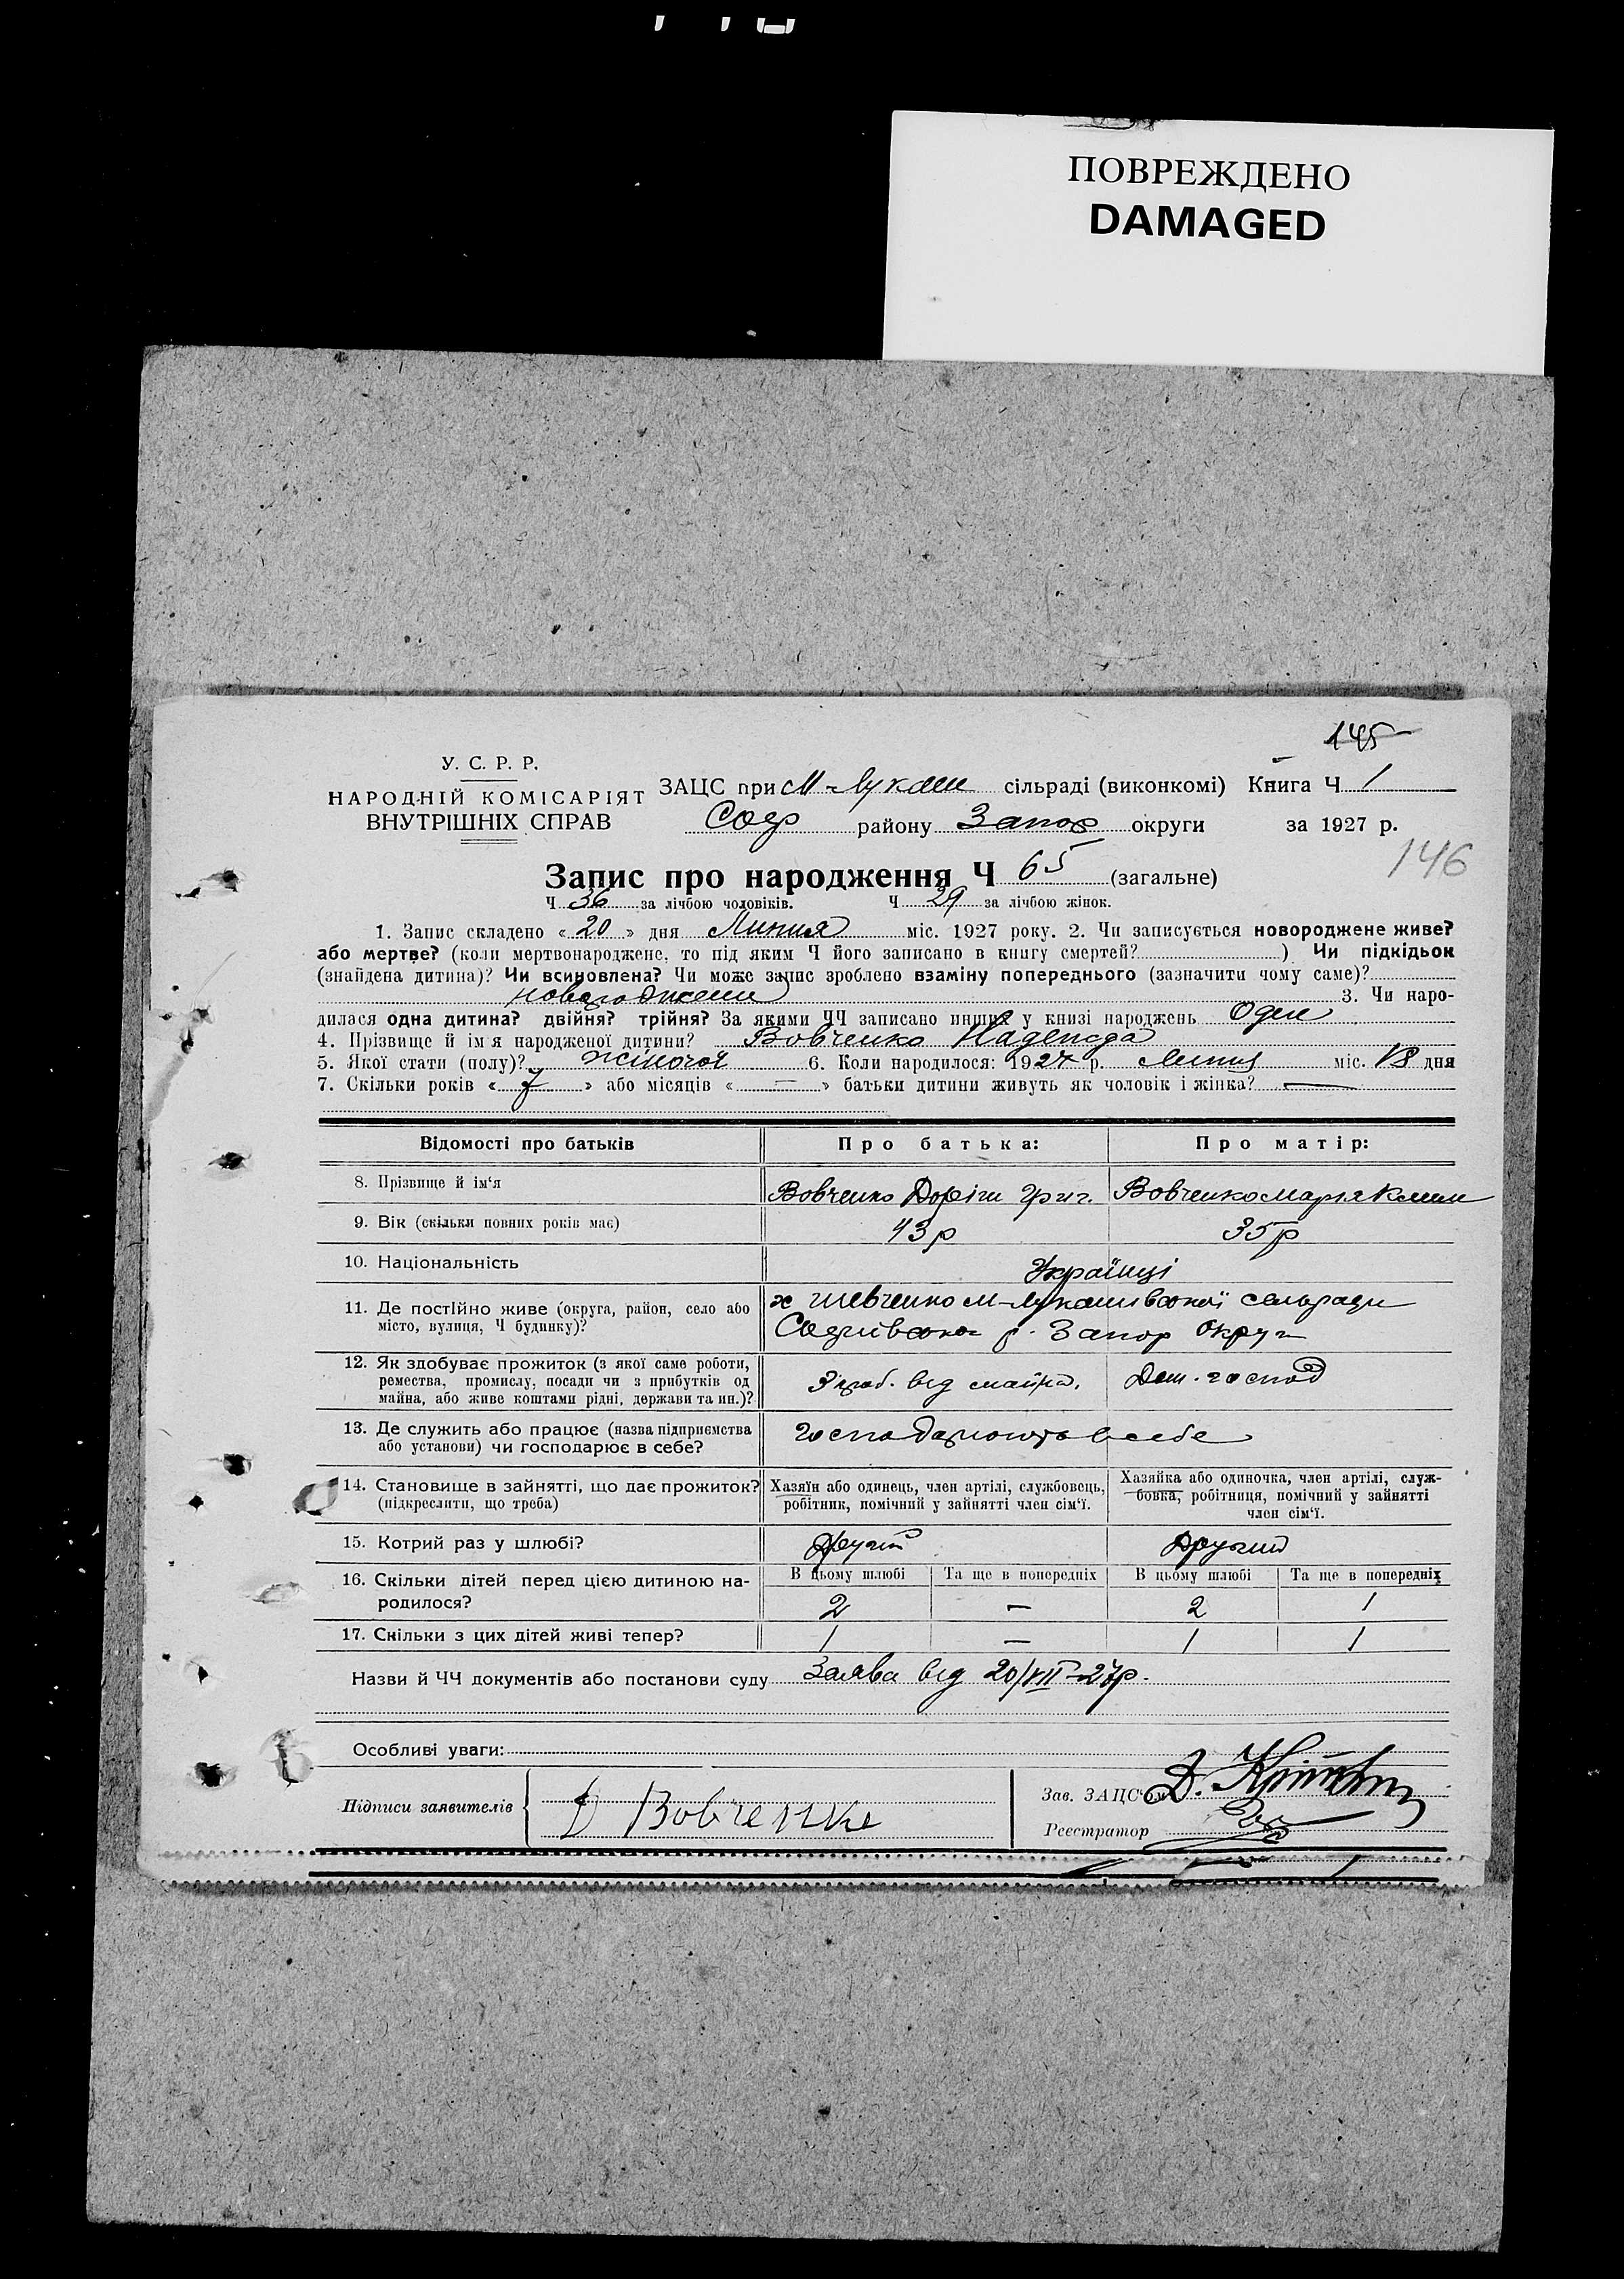 ПОВРЕЖДЕНО
DAMAGED
145
У. С. Р. Р.
НАРОДНІЙ КОМІСАРІЯТ
ВНУТРІШНІХ СПРАВ
ЗАЦС при М-Лукаш сільраді (виконкомі) Книга Ч 1
Соф району Запор округи за 1927 р.
146
Запис про народження Ч 65 (загальне)
Ч 36 за лічбою чоловіків. Ч 29 за лічбою жінок.
1. Запис складено «20» дня Липня міс. 1927 року. 2. Чи записується новороджене живе?
або мертве? (коли мертвонароджене, то під яким Ч його записано в книгу смертей? ) Чи підкідьок
(знайдена дитина)? Чи всиновлена? Чи може запис зроблено взаміну попереднього (зазначити чому саме)?
новороджени 3. Чи наро-
дилася одна дитина? двійня? трійня? За якими ЧЧ записано инших у книзі народжень Оден
4. Прізвище й ім'я народженої дитини? Вовченко Надежда
5. Якої стати (полу)? жіночої 6. Коли народилося: 1927 р. Липня міс. 18 дня
7. Скільки років « 7 » або місяців « — » батьки дитини живуть як чоловік і жінка? —
Відомості про батьків Про батька: Про матір:
8. Прізвище й ім'я Вовченко Григ. Вовченко Марія Клим
9. Вік (скільки повних років має) 43 р 35 р
10. Національність Українці
11. Де постійно живе (округа, район, село або
місто, вулиця, Ч будинку)?
х Шевченко М-Лукашівської сельради
Софіївського р. Запор Округи
12. Як здобуває прожиток (з якої саме роботи,
ремества, промислу, посади чи з прибутків од
майна, або живе коштами рідні, держави та ин.)?
від майна. Дом. господ
13. Де служить або працює (назва підприємства
або установи) чи господарює в себе?
господарюють в себе
14. Становище в зайнятті, що дає прожиток?
(підкреслити, що треба)
Хазяїн або одинець, член артілі, службовець,
робітник, помічний у зайнятті член сім'ї.
Хазяйка або одиночка, член артілі, служ-
бовка, робітниця, помічний у зайнятті
член сім'ї.
15. Котрий раз у шлюбі? Другий Другий
16. Скільки дітей перед цією дитиною на-
родилося?
В цьому шлюбі Та ще в попередніх В цьому шлюбі Та ще в попередніх
2 — 2 1
17. Скільки з цих дітей живі тепер? 1 — 1 1
Назви й ЧЧ документів або постанови суду Заява від 20/VII-27р.
Особливі уваги:
Підписи заявителів Д Вовченко
Зав. ЗАЦС'ом Д.
Реєстратор